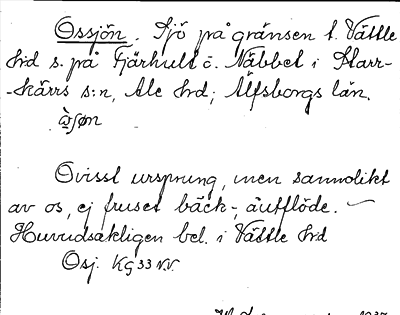 Ossjön. Sjö på gränsen t. Vättle
hrd s. på Fjärhult o. Näbbet i Starr-
-kärrs s:n, Ale hrd; Älfsborgs län.
Ovisst ursprung, men sannolikt
av os, ej fruset bäck-, åutflöde.
Huvudsakligen bel. i Vättle hrd
Osj. KG 33 N.V.